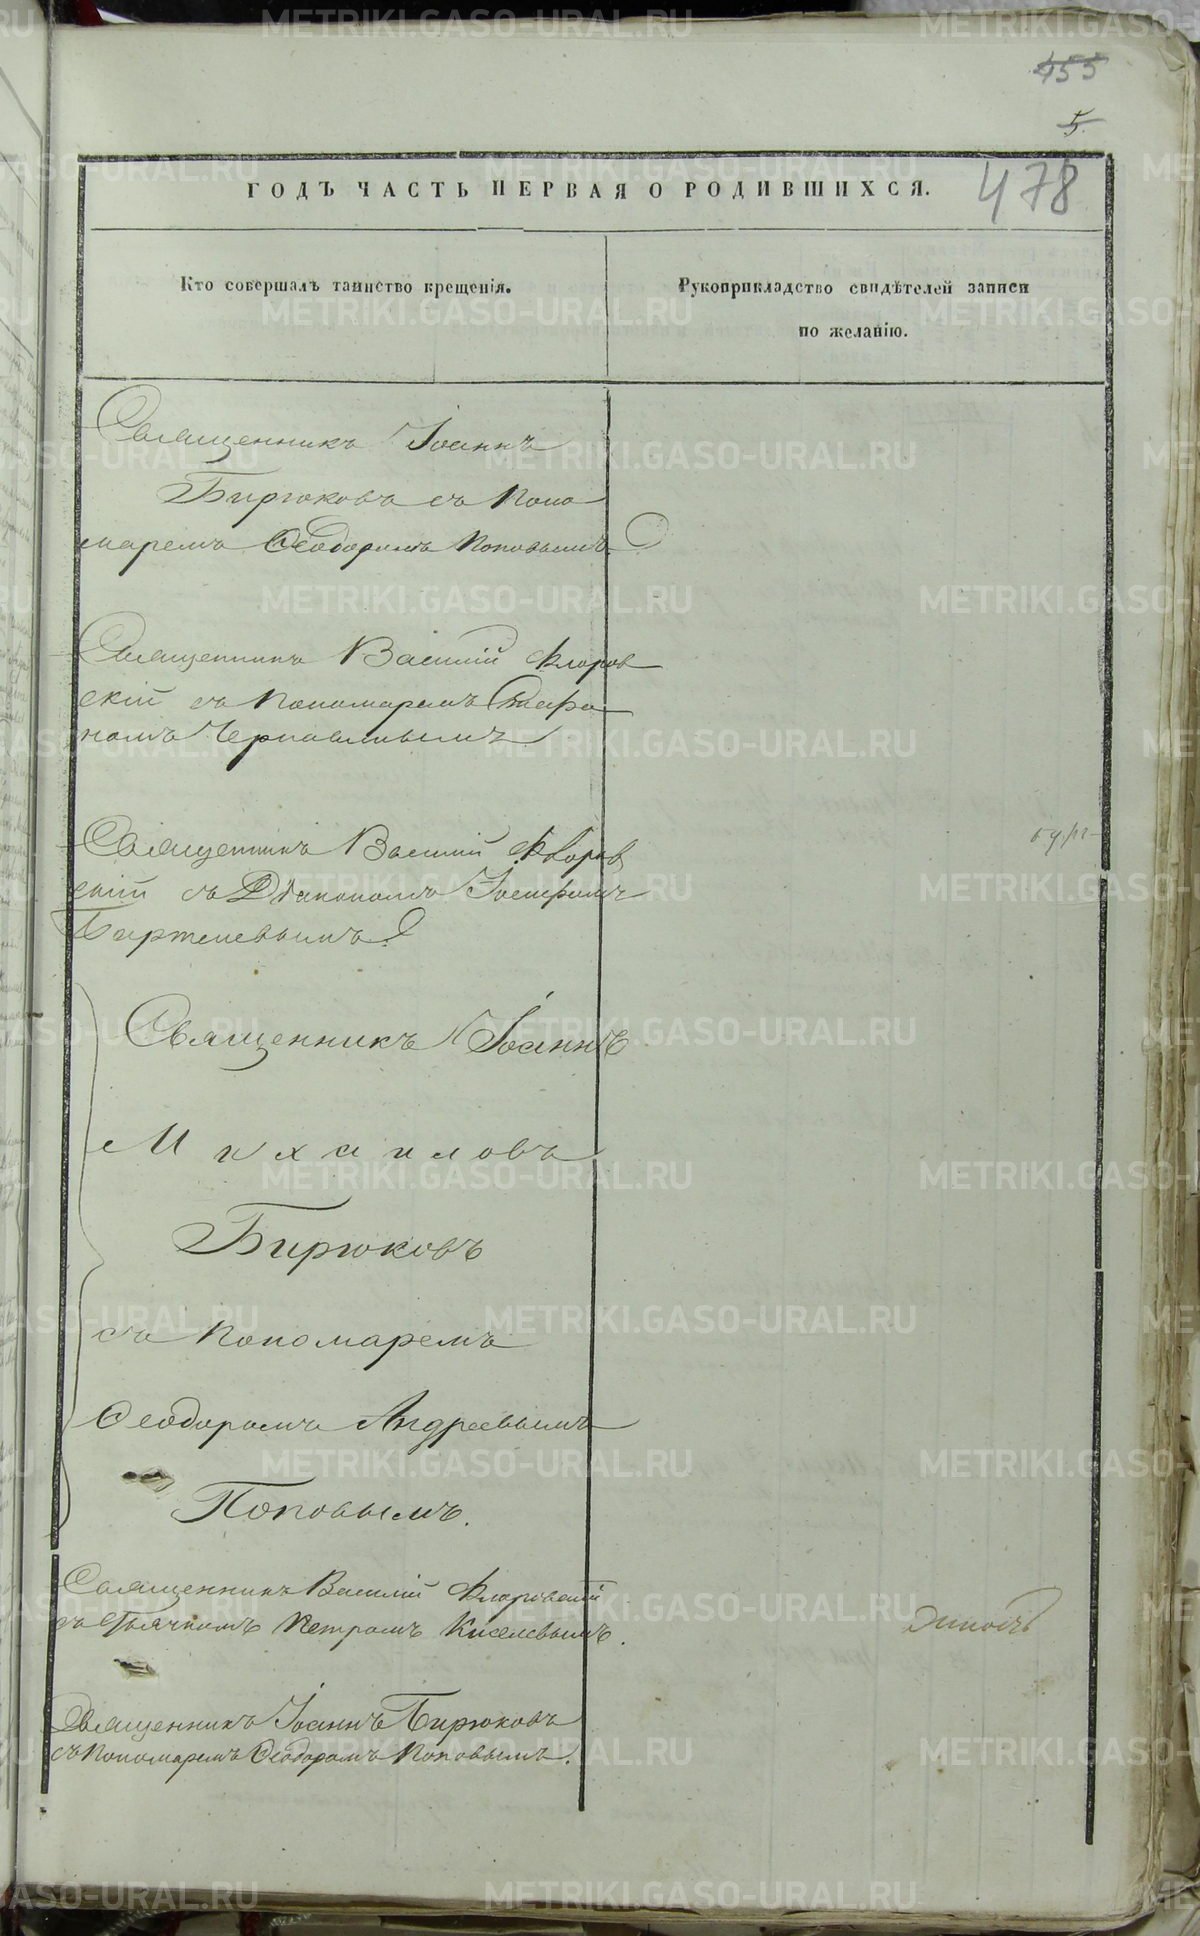 455
5.
ГОДЪ ЧАСТЬ ПЕРВАЯ О РОДИВШИХСЯ.
478
Кто совершалъ таинство крещенія.
Рукоприкладство свидѣтелей записи
по желанію.
Священникъ Іоаннъ
Бирюковъ съ Поно
маремъ Ѳеодоромъ Поповымъ.
Священникъ Василій Флоров
скій съ Пономаремъ Стефа
номъ
Священникъ Василій Флоров
скій съ Діакономъ Іосифомъ
Священникъ Іоаннъ
Михаиловъ
Бирюковъ
съ Пономаремъ
Ѳеодоромъ Андреевымъ
Поповымъ.
Священникъ Василій Флоровскій
съ Дьячкомъ Петромъ Киселевымъ.
Священникъ Іоаннъ Бирюковъ
съ Пономаремъ Ѳеодоромъ Поповымъ.
METRIKI.GASO-URAL.RU